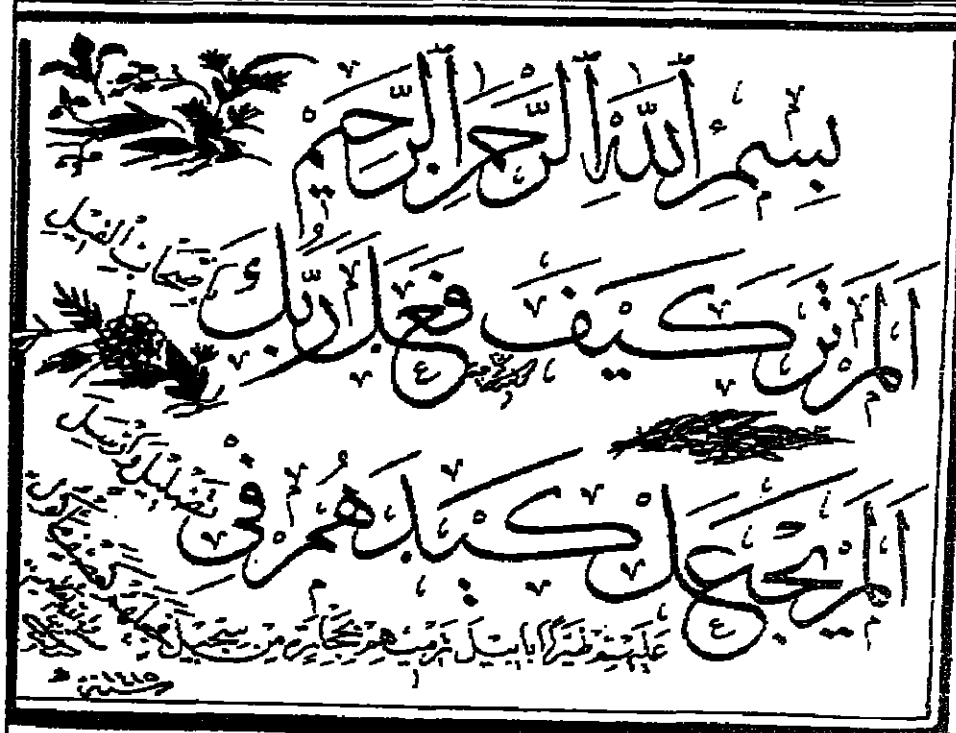 بِسْمِ اللّٰهِ الرَّحْمٰنِ الرَّحِيمِ
اَلَمْ تَرَ كَيْفَ فَعَلَ رَبُّكَ بِاَصْحَابِ الْفِيلِ
اَلَمْ يَجْعَلْ كَيْدَهُمْ فِى تَضْلِيلٍ وَاَرْسَلَ
عَلَيْهِمْ طَيْرًا اَبَابِيلَ تَرْمِيهِمْ بِحِجَارَةٍ مِنْ سِجِّيلٍ فَجَعَلَهُمْ كَعَصْفٍ مَأْكُولٍ
سنة ١٤١٥